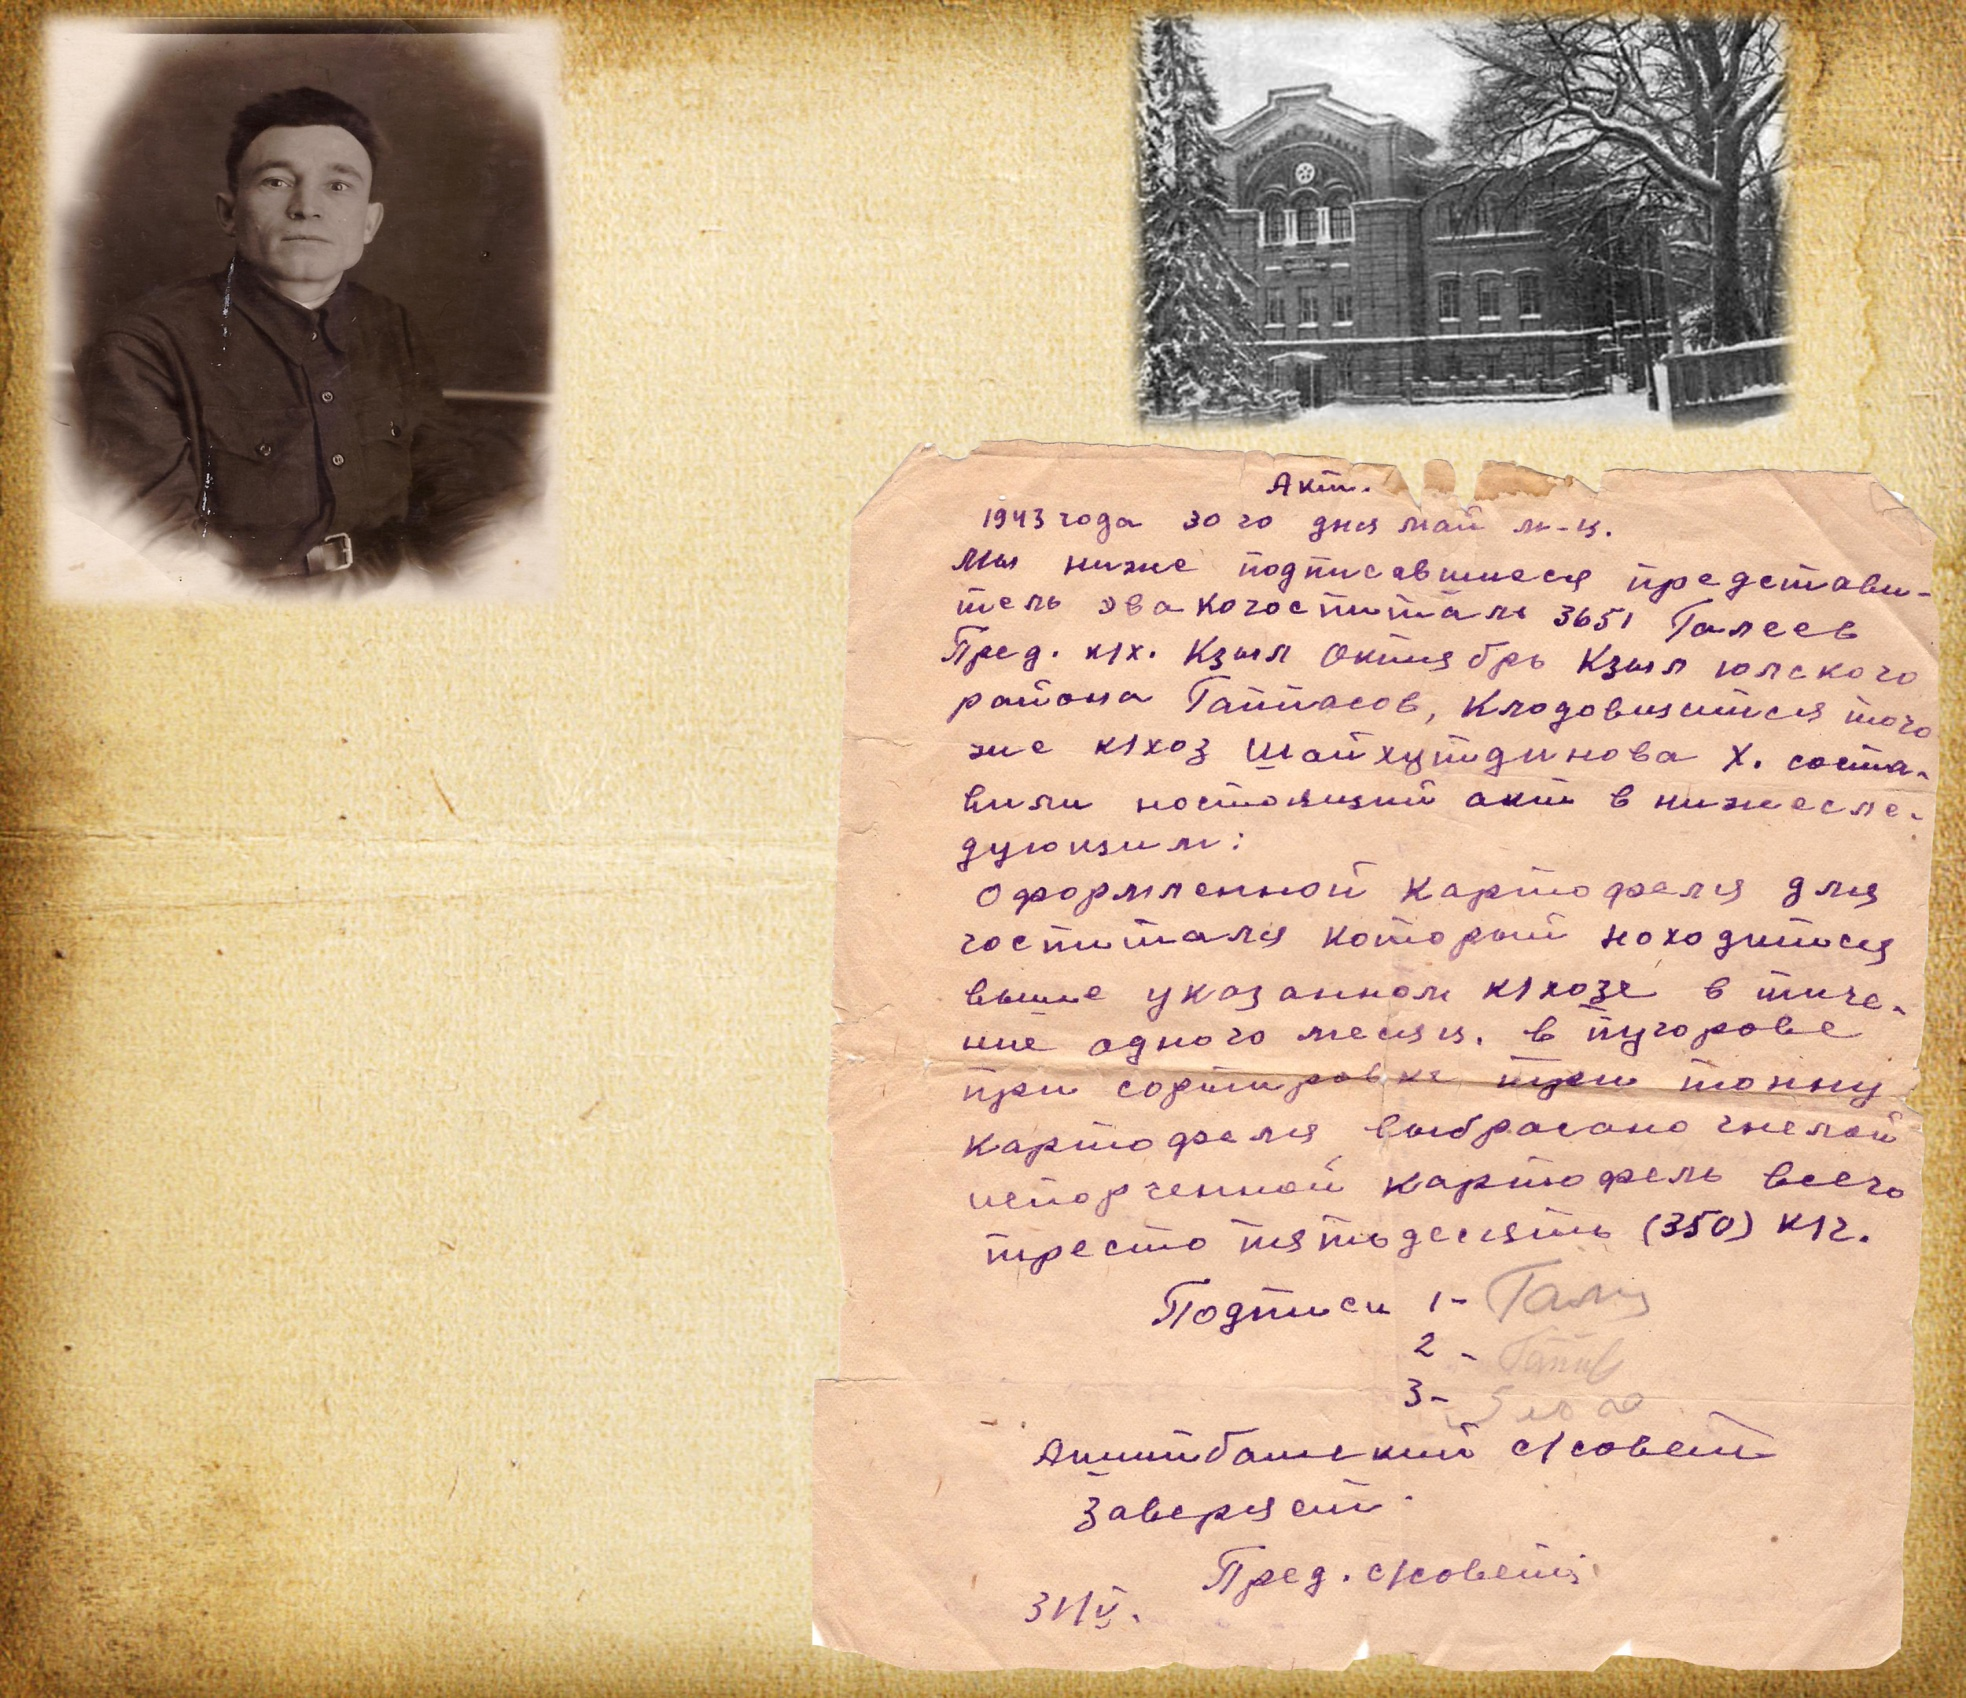 Акт.
1943 года 30 го дня май м-ц.
Мы ниже подписавшиеся представи-
тель эвакогоспиталь 3651 Галеев
Пред. к/х. Кзыл Октябрь Кзыл юлского
района Гаппасов, Кладовщится того
же к/хоз Шайхутдинова Х. соста-
вили настоящий акт в нижесле-
дующим:
Оформленной картофеля для
госпиталя который находится
выше указанном к/хозе в тиче-
ние одного месяц. в
при сортировке при тонну
картофеля выбрасано гнелой
испорченной картофель всего
тресто пятьдесять (350) к/г.
Подписи 1-
2 -
3-
с/совет
заверяет.
Пред. с/совета
31/V.